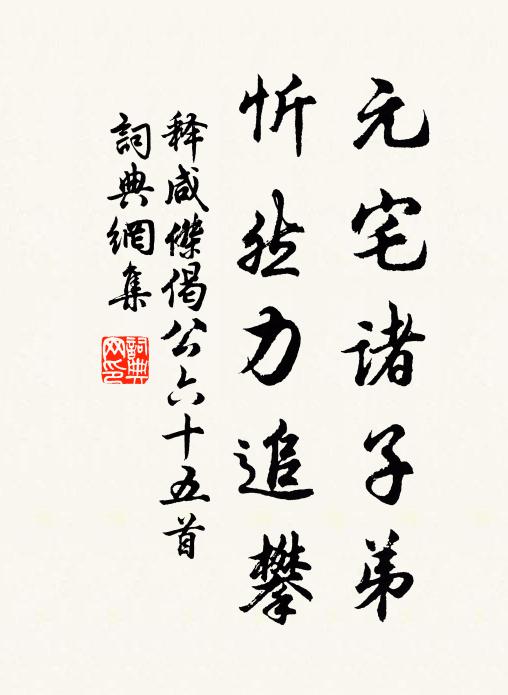 元宅诸子弟
忻然力追攀
释咸傑偈公六十五首
詞典網集
詞典
网印